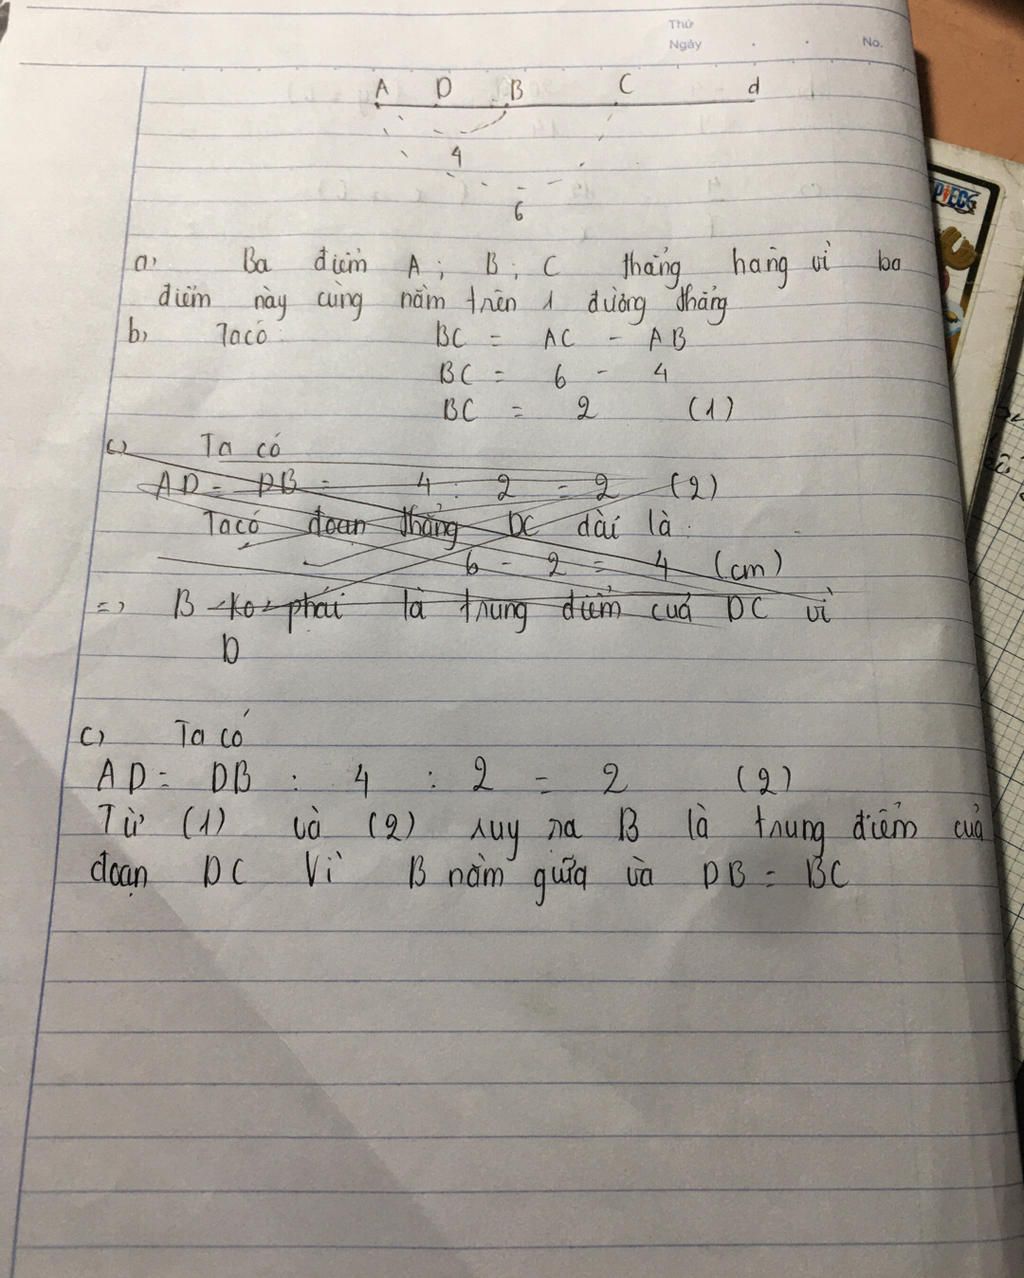 Thứ
Ngày . . No.
A D B C d
4
6
a, Ba điểm A; B; C thẳng hàng vì ba
điểm này cùng nằm trên 1 đường thẳng
b, Ta có: BC = AC - AB
BC = 6 - 4
BC = 2 (1)
c, Ta có
AD = DB = 4 : 2 = 2 (2)
Ta có đoạn thẳng DC dài là:
6 - 2 = 4 (cm)
=> B ko phải là trung điểm của DC vì
D
c) Ta có
AD = DB : 4 : 2 = 2 (2)
Từ (1) và (2) suy ra B là trung điểm của
đoạn DC Vì B nằm giữa và DB = BC
PIECE